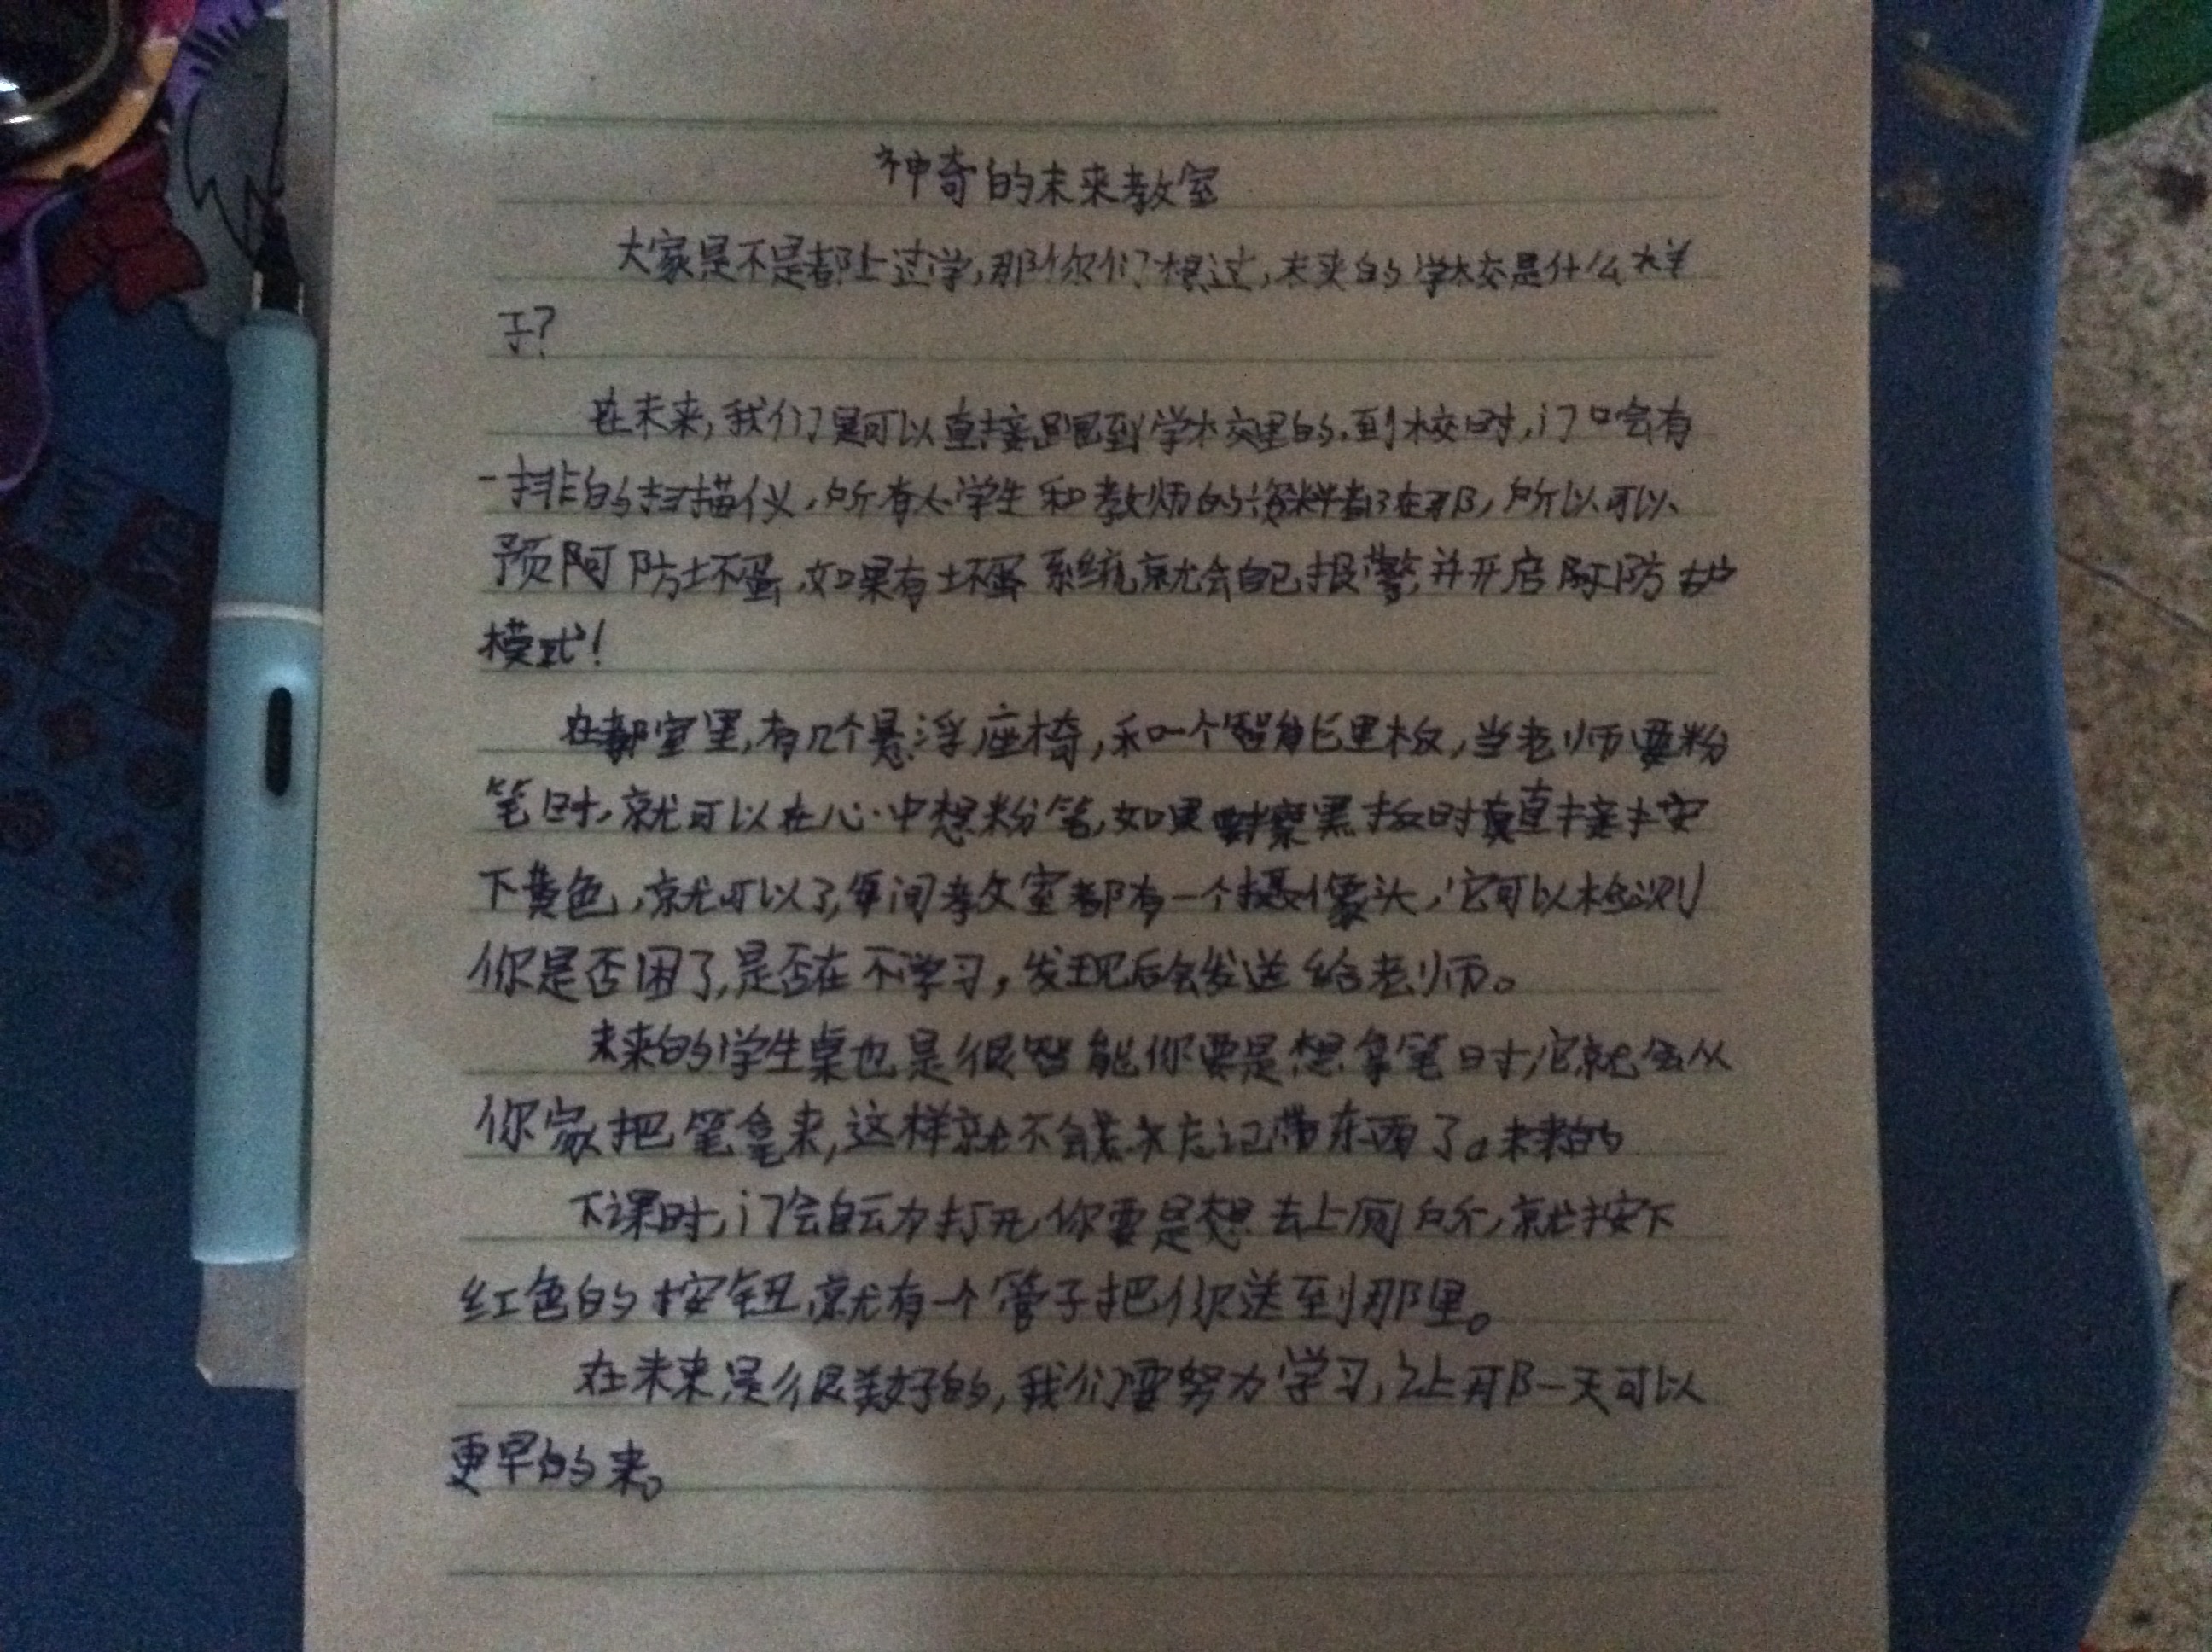 神奇的未来教室
大家是不是都上过学,那你们想过,未来的学校是什么样
子?
在未来,我们是可以直接到学校里的,到校时,门口会有
一排的扫描仪,所有学生和教师的资料都在那,所以可以
预防坏蛋,如果有坏蛋系统就会自己报警,并开启防护
模式!
在室里,有几个悬浮座椅,和一个智能黑板,当老师要粉
笔时,就可以在心中想粉笔,如果擦黑板时直接按
下黄色,就可以了,每间教室都有一个摄像头,它可以检测
你是否困了,是否在不学习,发现后会发送给老师。
未来的学生桌也是很智能你要是想拿笔时,它就会从
你家把笔拿来,这样就不会忘记带东西了。
下课时,门会自动打开,你要是想去上厕所,就按下
红色的按钮,就有一个管子把你送到那里。
在未来是很美好的,我们要努力学习,让那一天可以
更早的来。